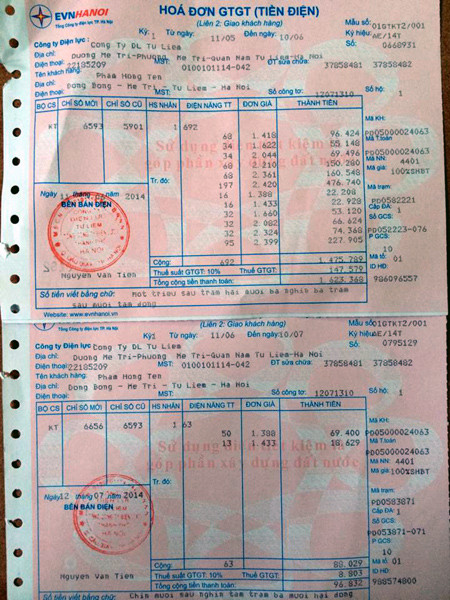 EVNHANOI
Tổng Công ty điện lực TP. Hà Nội
HOÁ ĐƠN GTGT (TIỀN ĐIỆN)
(Liên 2: Giao khách hàng)
Mẫu số: 01GTKT2/001
Ký hiệu: AE/14T
Số: 0668931
Kỳ: 1 Từ ngày: 11/05 Đến ngày: 10/06
Công ty Điện lực: Cong Ty DL Tu Liem
Địa chỉ: Duong Me Tri-Phuong Me Tri-Quan Nam Tu Liem-Ha Noi
Điện thoại: 22185209 MST: 0100101114-042 ĐT sửa chữa: 37858481 37858482
Tên khách hàng: Pham Hong Ten
Địa chỉ: Dong Bong - Me Tri - Tu Liem - Ha Noi
Điện thoại: MST: Số công tơ: 12071310 Số hộ: 1
BỘ CS CHỈ SỐ MỚI CHỈ SỐ CŨ HS NHÂN ĐIỆN NĂNG TT ĐƠN GIÁ THÀNH TIỀN
KT 6593 5901 1 692
68 1.418 96.424
34 1.622 55.148
34 2.044 69.496
68 2.210 150.280
68 2.361 160.548
Tr. đó: 197 2.420 476.740
16 1.388 22.208
16 1.433 22.928
32 1.660 53.120
32 2.082 66.624
32 2.324 74.368
95 2.399 227.905
Mã KH: PD05000024063
Mã T.toán PD05000024063
Mã NN: 4401
Mã giá: 100%SHBT
Mã trạm: PD0582221
Cấp ĐA: 1
Số GCS: PD052223-076
P GCS: 10
Mã tổ: 01
ID HĐ: 986096557
Sử dụng điện tiết kiệm là
góp phần xây dựng đất nước
Ngày 11 tháng năm 2014
BÊN BÁN ĐIỆN
TỪ LIÊM
HÀ NỘI
Nguyen Van Tien
Cộng: 692 1.475.789
Thuế suất GTGT: 10% Thuế GTGT: 147.579
Tổng cộng tiền thanh toán: 1.623.368
Số tiền viết bằng chữ: Mot trieu sau tram hai muoi ba nghin ba tram
sau muoi tam dong
Website: www.evnhanoi.vn
Tổng Công ty điện lực TP. Hà Nội
(Liên 2: Giao khách hàng)
Mẫu số 01GTKT2/001
Ký hiệu AE/14T
Số: 0795129
Kỳ 1 Từ ngày: 11/06 Đến ngày: 10/07
Công ty Điện lực: Cong Ty DL Tu Liem
Địa chỉ: Duong Me Tri-Phuong Me Tri-Quan Nam Tu Liem-Ha Noi
Điện thoại: 22185209 MST: 0100101114-042 ĐT sửa chữa: 37858481 37858482
Tên khách hàng: Pham Hong Ten
Địa chỉ: Dong Bong - Me Tri - Tu Liem - Ha Noi
Điện thoại: MST: Số công tơ: 12071310 Số hộ: 1
BỘ CS CHỈ SỐ MỚI CHỈ SỐ CŨ HS NHÂN ĐIỆN NĂNG TT ĐƠN GIÁ THÀNH TIỀN
KT 6656 6593 1 63
50 1.388 69.400
13 1.433 18.629
Tr. đó:
Mã KH: PD05000024063
Mã T.toán PD05000024063
Mã NN: 4401
Mã giá: 100%SHBT
Mã trạm: PD0583871
Cấp ĐA: 1
Số GCS: PD053871-071
P GCS: 10
Mã tổ: 01
ID HĐ: 988574800
Sử dụng điện tiết kiệm là
góp phần xây dựng đất nước
Ngày 12 tháng 07 năm 2014
BÊN BÁN ĐIỆN
Nguyen Van Tien
Cộng: 63 88.029
Thuế suất GTGT: 10% Thuế GTGT: 8.803
Tổng cộng tiền thanh toán: 96.832
Số tiền viết bằng chữ: Chin muoi sau nghin tam tram ba muoi hai dong